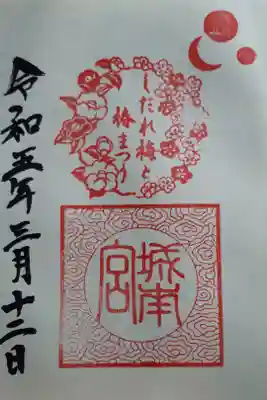 しだれ梅と
椿まつり
城南宮
令和五年三月十二日